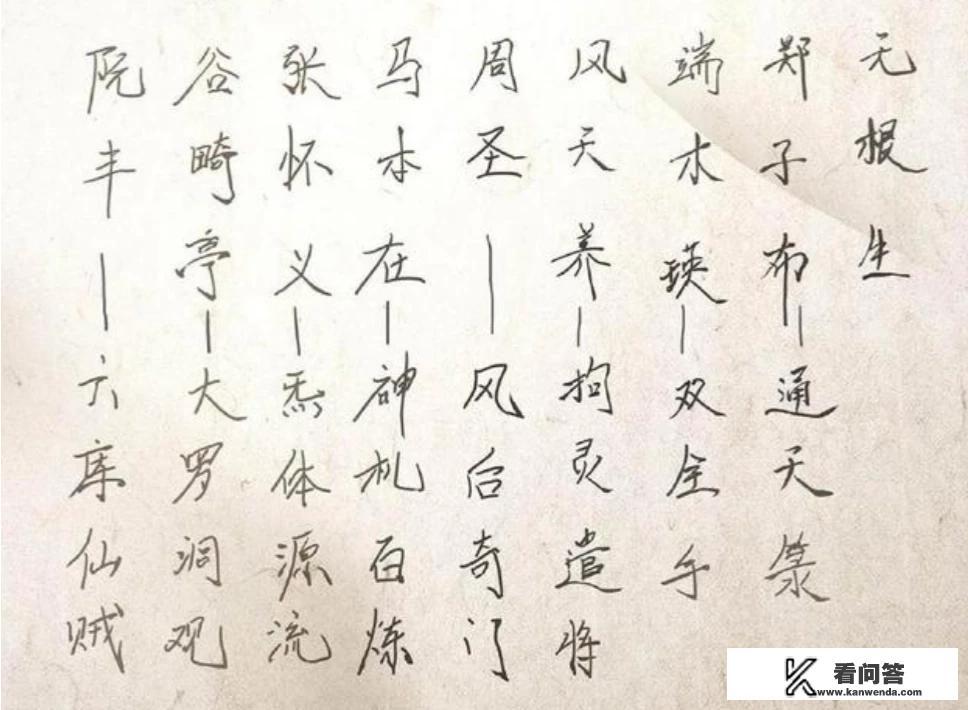 无根生
郑子布—通天箓
端木瑛—双全手
风天养—拘灵遣将
周圣—风后奇门
马本在—神机百炼
张怀义—炁体源流
谷畸亭—大罗洞观
阮丰—六库仙贼
看问答
www.kanwenda.com